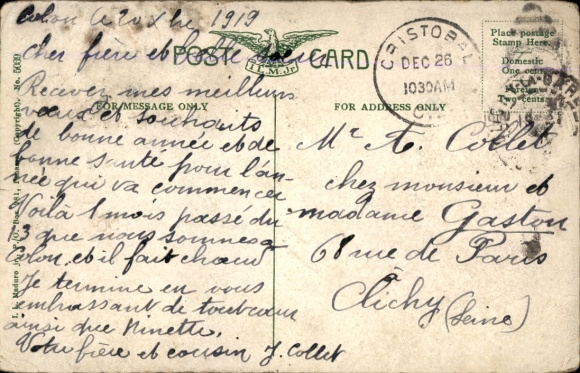 Colon le 20 Xbre 1919
Cher frère et
POST CARD
I.L.M.Jr.
CRISTOBAL
DEC 26
1030AM
C.Z.
Place postage
Stamp Here.
Domestic
One cent.
Foreign
Two cents.
No. 5039
FOR MESSAGE ONLY
FOR ADDRESS ONLY
Recevez mes meilleurs
vœux et souhaits
de bonne année et de
bonne santé pour l'an-
née qui va commencer
Voilà 1 mois passé du
3 que nous sommes à
Colon, et il fait chaud
Je termine en vous
embrassant de tout cœur
ainsi que Ninette.
Votre frère et cousin J. Collet
Mr A. Collet
chez monsieur et
madame Gaston
68 rue de Paris
à
Clichy (Seine)
I. L. Maduro Jr.
(Copyright).